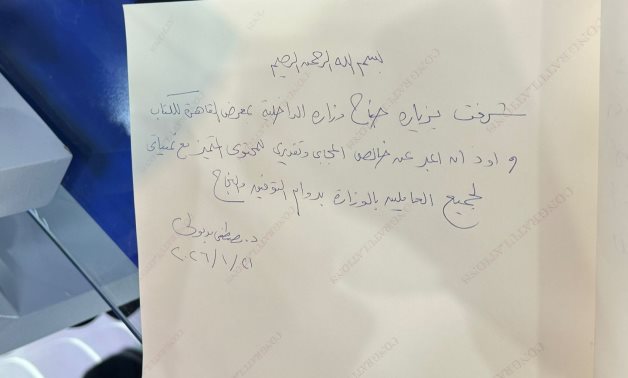 بسم الله الرحمن الرحيم
تشرفت بزيارة جناح وزارة الداخلية بمعرض القاهرة للكتاب
و اود ان اعبر عن خالص اعجابي وتقديري للمحتوى المتميز مع تمنياتي
لجميع العاملين بالوزارة بدوام التوفيق والنجاح
د. مصطفى مدبولي
٢٠٢٦/١/٢١
CONGRATULATIONS